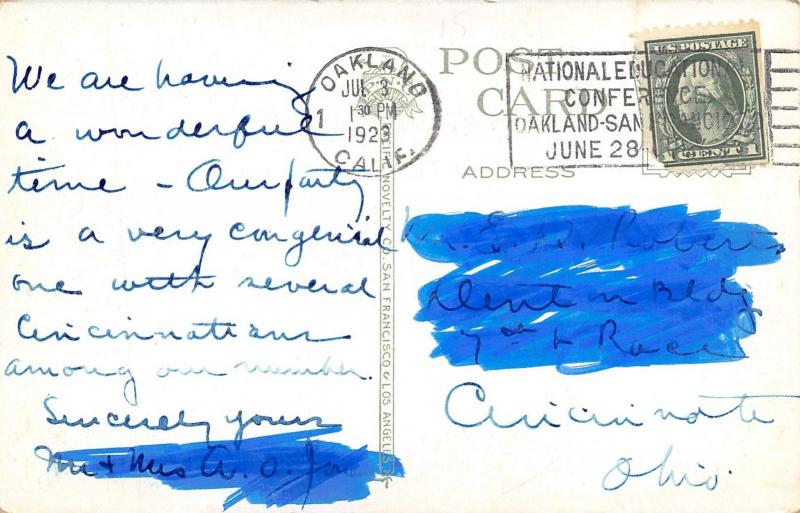 We are having
a wonderful
time - Our party
is a very congenial
one with several
Cincinnatians
among our number.
Sincerely yours
Mr & Mrs A. O.
OAKLAND
JUL 3
1 30 PM
1923
CALIF.
1
POST CARD
NATIONAL EDUCATION
CONFERENCE
OAKLAND-SAN FRANCISCO
JUNE 28
U.S. POSTAGE
1 CENT 1
ADDRESS
PACIFIC NOVELTY CO. SAN FRANCISCO & LOS ANGELES
Mr. E. A. Roberts
Denton Bldg
7th & Race
Cincinnati
Ohio.